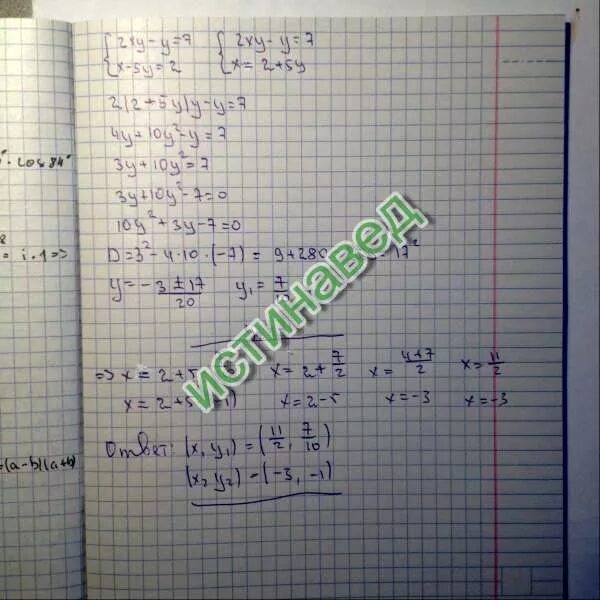 {2xy-y=7 {2xy-y=7
x-5y=2 x=2+5y
2(2+5y)y-y=7
4y+10y²-y=7
3y+10y²=7
3y+10y²-7=0
10y²+3y-7=0
D=3²-4·10·(-7)=9+280 17²
y=-3±17/20 y₁=7/
=> x=2+5 x=2+7/2 x=4+7/2 x=11/2
x=2+5 1) x=2-5 x=-3 x=-3
Ответ: (x,y₁)=(11/2, 7/10)
(x₂y₂)-(-3,-1)
· cos 84°
= i.1=>
(a-b)(a+b)
истинавед